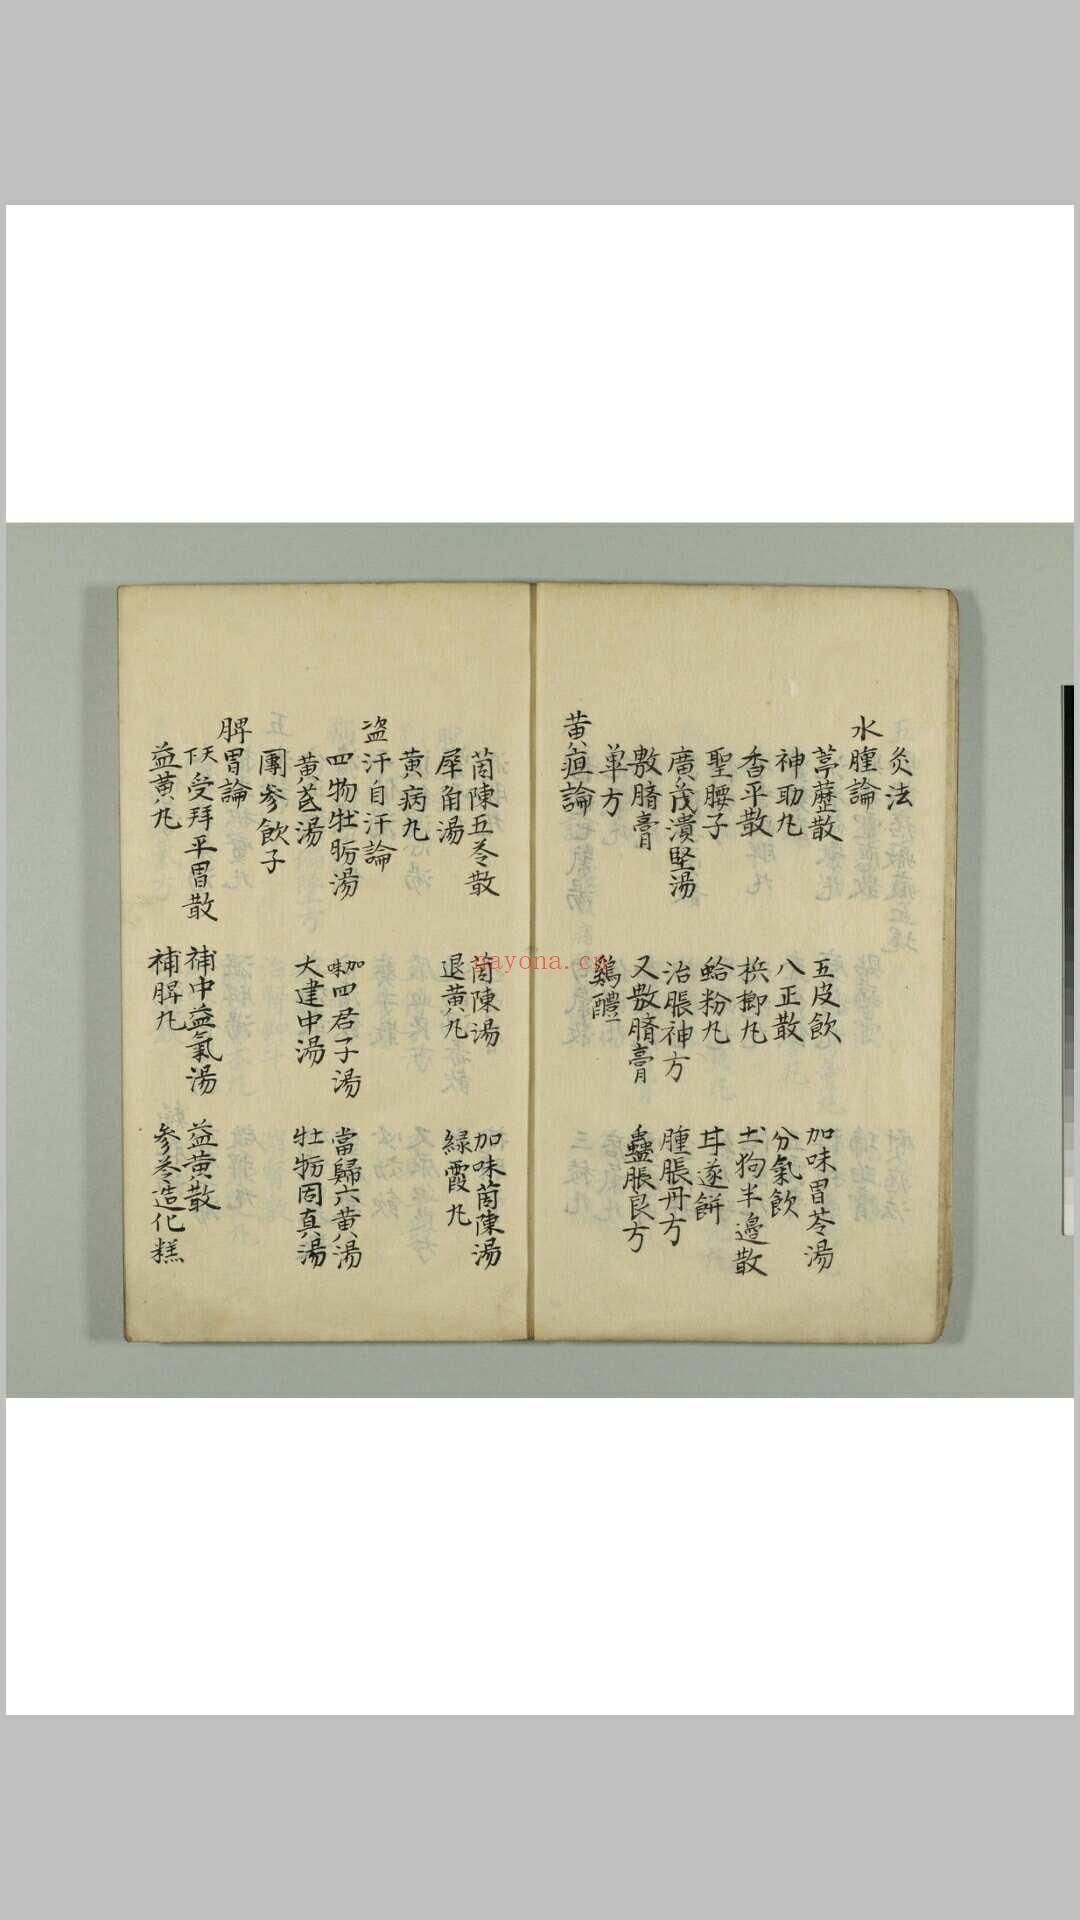 灸法
水腫論
葶藶散　五皮飲　加味胃苓湯
神助丸　八正散　分氣飲
香平散　梹榔丸　土狗半邊散
聖腰子　蛤粉丸　甘遂餅
廣茂潰堅湯　治脹神方　腫脹丹方
敷臍膏　又敷臍膏　蠱脹良方
單方　鷄醴
黄疸論
茵陳五苓散　茵陳湯　加味茵陳湯
犀角湯　退黄丸　緑霞丸
黄病丸
盗汗自汗論
四物牡蛎湯　加味四君子湯　當歸六黄湯
黄芪湯　大建中湯　牡蛎固真湯
團參飲子
脾胃論
天下受拜平胃散　補中益氣湯　益黄散
益黄丸　補脾丸　參苓造化糕
nayona.cn